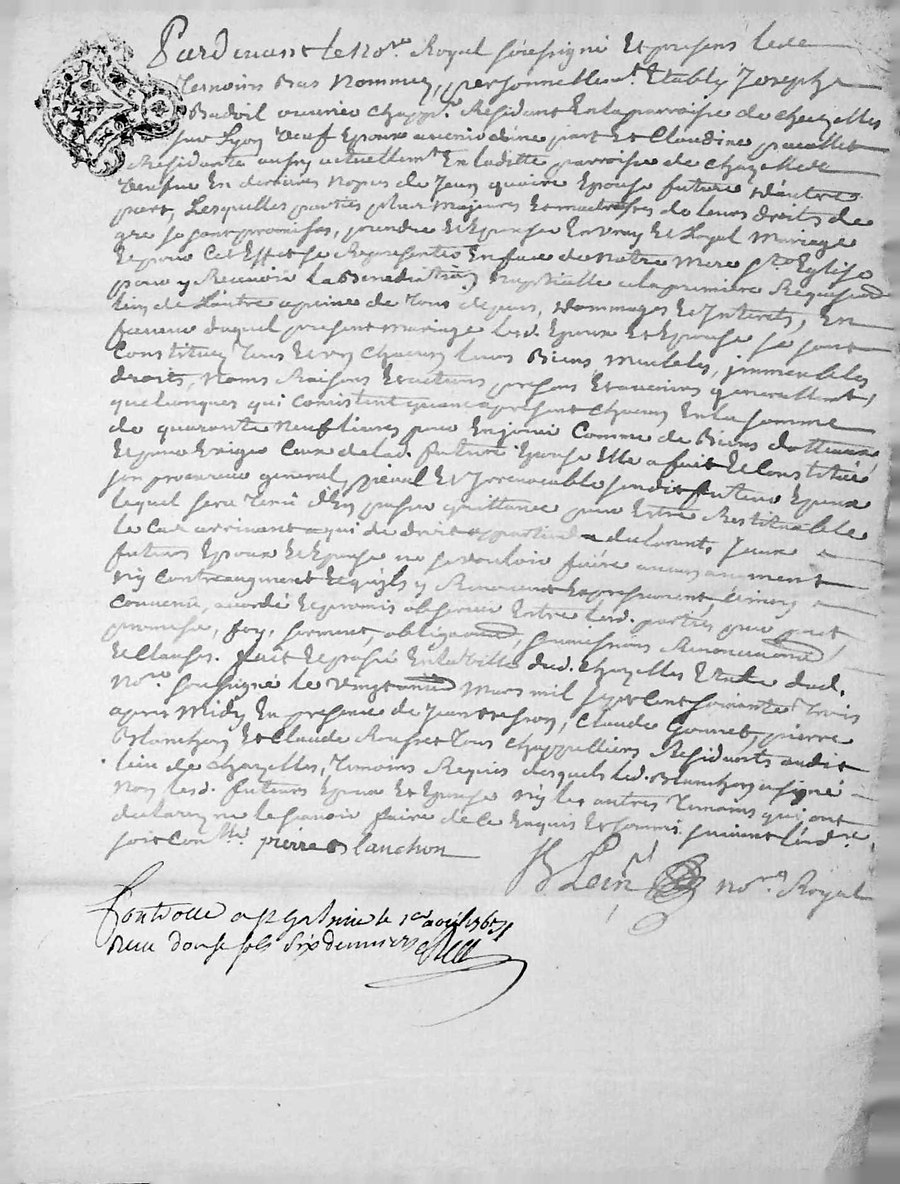 Pardevant le no.re Royal soresigné Et presens les
Temoins Bas Nommez, personnellem.t Etably Joseph
Badoil ouvrier chapp.r Résidant En la parroisse de chazelles
sur Lyon veuf Epoux avenir d'une part Et Claudine
Résidante aussy actuellem.t En laditte parroisse de chazelles
veufve En dernieres Nopces de Jean Epouse future d'autre
part, Lesquelles parties plus Majeures Et maitresses de leurs droits de
gre se sont promises, prendre Et Epouser En vray Et Loyal Mariage
Et pour Cet Effet se Représenter En face de Notre Mere S.te Eglise
pour y Recevoir La Benediction Nuptialle a la premiere Requisition
L'un de Lautre a peine de Tous depens, Dommages Et Interets, En
faveur duquel présent Mariage Lesd. Epoux Et Epouse se sont
Constituez Tous Et un Chacun leurs Biens Meubles, immeubles,
droits, Noms Raisons Et actions présens Et avenirs generallem.t
quelconques qui Consistent quant a présent Chacun En la somme
de quarante Neuf livres pour En jouir Comme de Biens dotteaux
Et pour Exiger Ceux de lad. future Epouse Elle a fait Et Constitué
son procureur general, special Et Irrevocable sondit futeur Epoux
lequel sera Tenû d'En passer quittance pour Estre Restituable
le Cas arrivant a qui de droit appartiendra declarants Iceux
futurs Epoux Et Epouse ne se vouloir faire aucun
Ny Contreaugment Et quils y Renoncent Expressement
Convenû, accordé Et promis observer Entre lesd. parties par pact
promesse, foy, serment, obligations, soumissions Renonciations
Et Clauses. fait Et passé En la ville dud. Chazelles Etude dud.
No.re soussigné le Mars mil sept Cent soixante Trois
apres Midy En presence de Jean, Claude Gonnet, pierre
Blanchon Et Claude Tous Chappelliers Résidants audit
lieu de chazelles, Temoins Requis desquels led. Blanchon a signé
Non lesd. futeurs Epoux Et Epouse Ny les autres Temoins qui ont
declarez ne le sçavoir faire de Ce Enquis Et sommés suivant l'ord.ce
soit Con.llé pierre Blanchon
no.re Royal
Controllé a S.t Galmier le 1.er avril 1763
Reçu douze sols six deniers